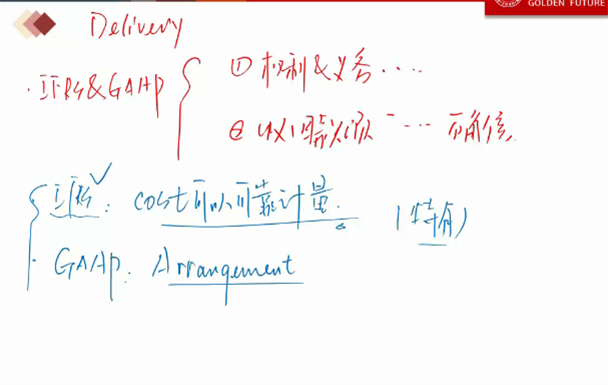 GOLDEN FUTURE
Delivery
· IFRS&GAAP
① 权利&义务 ····
② 收入 ···
IFRS: cost 可以可靠计量.
(特有)
· GAAP: Arrangement